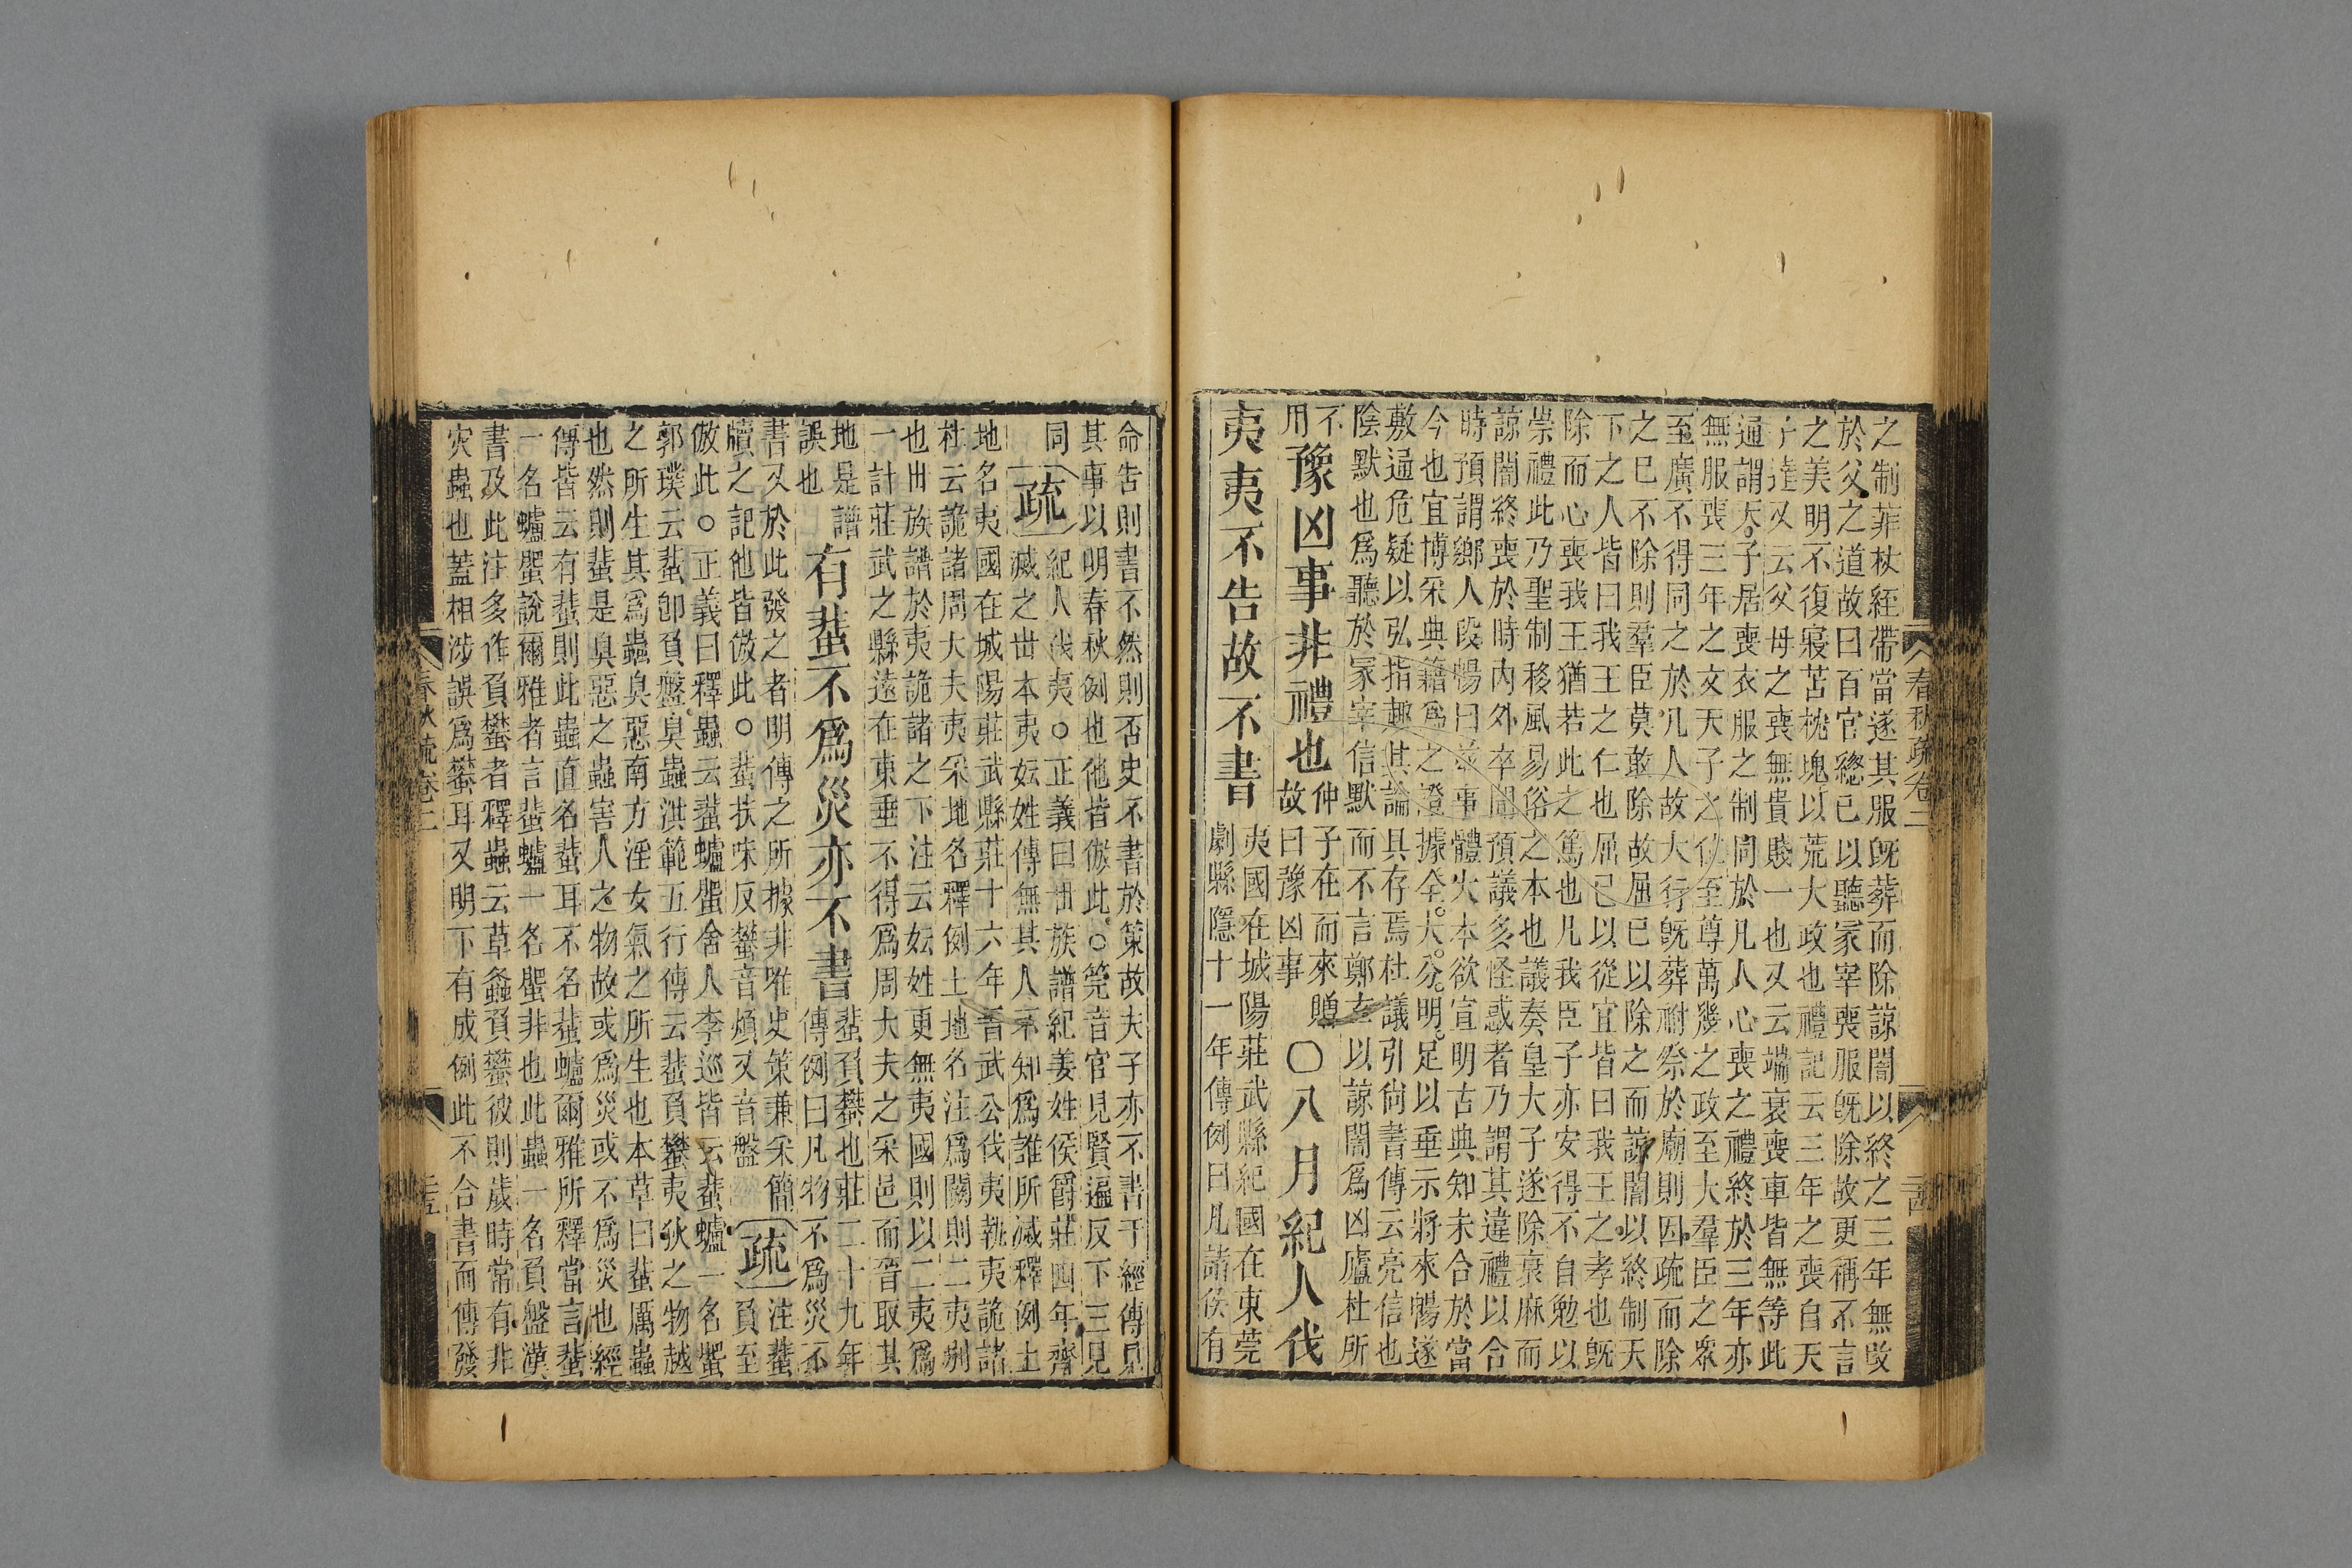 之制菲杖絰帶當遂其服旣葬而除諒闇以終之三年無改
於父之道故曰百官緫已以聽冢宰喪服旣除故更稱不言
之美明不復寢苫枕塊以荒大政也禮記云三年之喪自天
子達又云父母之喪無貴賤一也又云端衰喪車皆無等此
通謂天子居喪衣服之制同於凡人心喪之禮終於三年亦
無服喪三年之文天子之位至尊萬幾之政至大羣臣之眾
至廣不得同之於凡人故大行旣葬祔祭於廟則因疏而除
之已不除則羣臣莫敢除故屈已以除之而諒闇以終制天
下之人皆曰我王之仁也屈已以從宜皆曰我王之孝也旣
除而心喪我王猶若此之篤也凡我臣子亦安得不自勉以
崇禮此乃聖制移風易俗之本也議奏皇大子遂除衰麻而
諒闇終喪於時内外卒聞預議多怪惑者乃謂其違禮以合
時預謂鄉人段暢曰茲事體大本欲宣明古典知未合於當
今也宜博采典籍爲之證據令大分明足以垂示將來暢遂
敷通危疑以弘指趣其論具存焉杜議引尙書傳云亮信也
陰默也爲聽於冢宰信默而不言鄭玄以諒闇爲凶廬杜所
不
用
豫凶事非禮也
仲子在而來贈
故曰豫凶事
○八月紀人伐
夷夷不告故不書
夷國在城陽莊武縣紀國在東莞
劇縣隱十一年傳例曰凡諸侯有
春秋疏卷二
二十四
命告則書不然則否史不書於策故夫子亦不書于經傳見
其事以明春秋例也他皆倣此○筦音官見賢遍反下三見
同
疏
紀人伐夷○正義曰世族譜紀姜姓侯爵莊四年齊
滅之世本夷妘姓傳無其人不知爲誰所滅釋例土
地名夷國在城陽莊武縣莊十六年晉武公伐夷執夷詭諸
杜云詭諸周大夫夷采地名釋例土地名注爲闕則二夷別
也世族譜於夷詭諸之下注云妘姓更無夷國則以二夷爲
一計莊武之縣遠在東垂不得爲周大夫之采邑而晉取其
地是譜
誤也
有蜚不爲災亦不書
蜚負蠜也莊二十九年
傳例曰凡物不爲災不
書又於此發之者明傳之所據非唯史策兼采簡
牘之記他皆倣此○蜚扶味反蠜音煩又音盤
疏
注蜚
負至
倣此○正義曰釋蟲云蜚蠦蜰舍人李巡皆云蜚蠦一名蜰
郭璞云蜚卽負盤臭蟲洪範五行傳云蜚負蠜夷狄之物越
之所生其爲蟲臭惡南方淫女氣之所生也本草曰蜚厲蟲
也然則蜚是臭惡之蟲害人之物故或爲災或不爲災也經
傳皆云有蜚則此蟲直名蜚耳不名蜚蠦爾雅所釋當言蜚
一名蠦蜰說爾雅者言蜚蠦一名蜰非也此蟲一名負盤漢
書及此注多作負蠜者釋蟲云草螽負蠜彼則歲時常有非
災蟲也蓋相涉誤爲蠜耳又明下有成例此不合書而傳發
春秋疏卷二
二十五